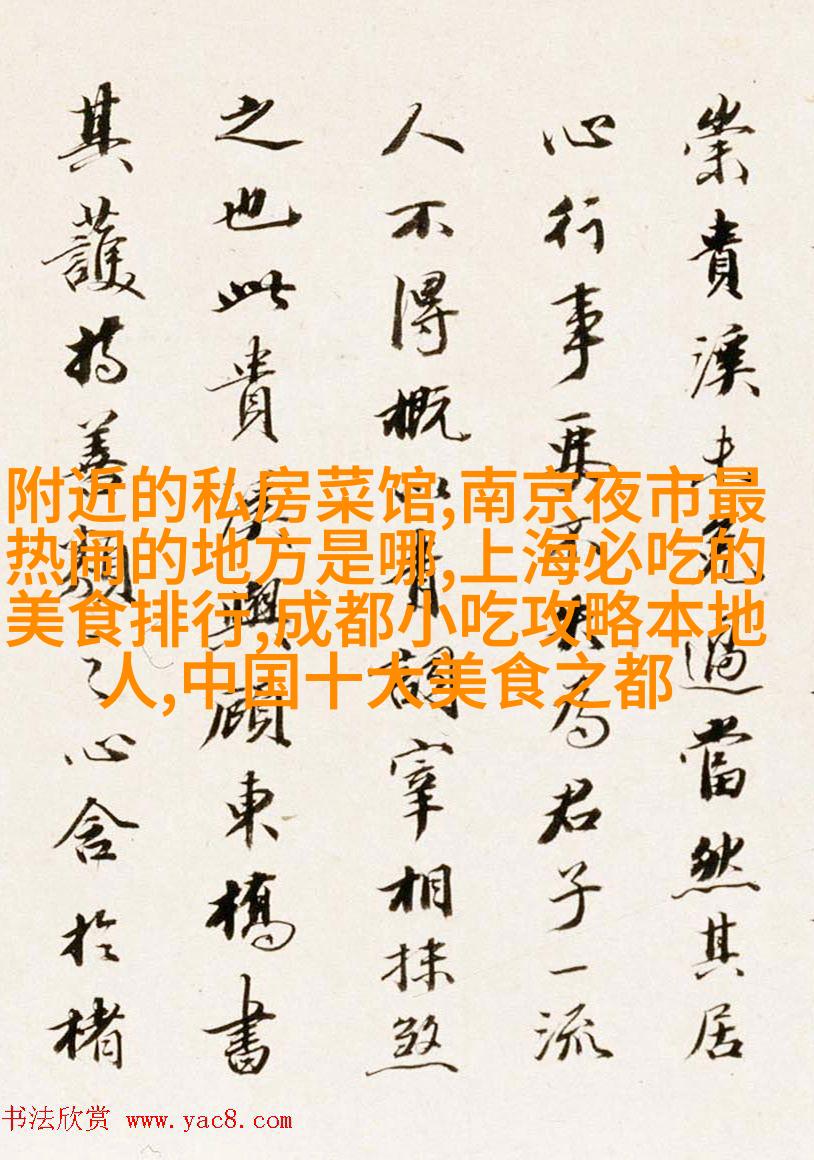 崇貴溪過當然其居
心行事要不失為君子一流
人不得概以青詞宰相抹煞
之也此貴溪與顧東橋書
其護持善類之心含於楮
附近的私房菜馆,南京夜市最
热闹的地方是哪,上海必吃的
美食排行,成都小吃攻略本地
人,中国十大美食之都
书法欣赏 www.yac8.com